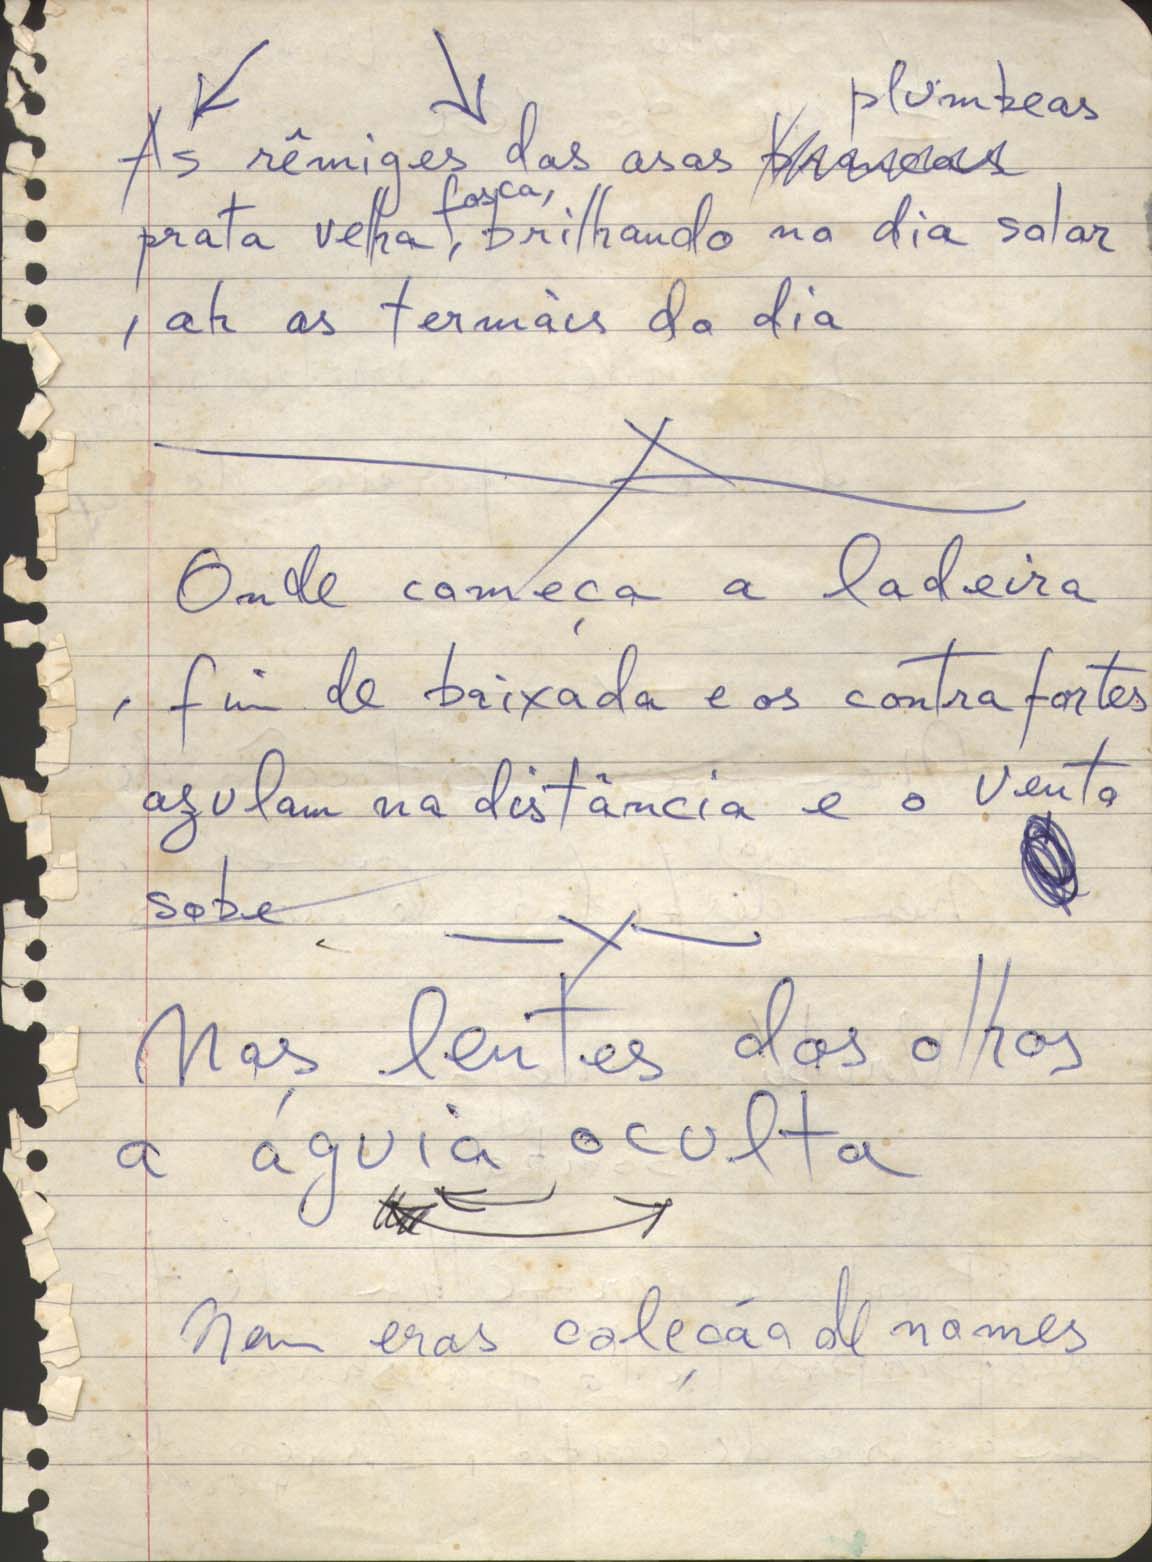 plúmbeas
As rêmiges das asas brancas
fosca,
prata velha, brilhando no dia solar
, ah as termais do dia
Onde começa a ladeira
, fim de baixada e os contrafortes
azulam na distância e o vento
sobe
Nas lentes dos olhos
a águia oculta
Nem eras coleção de nomes